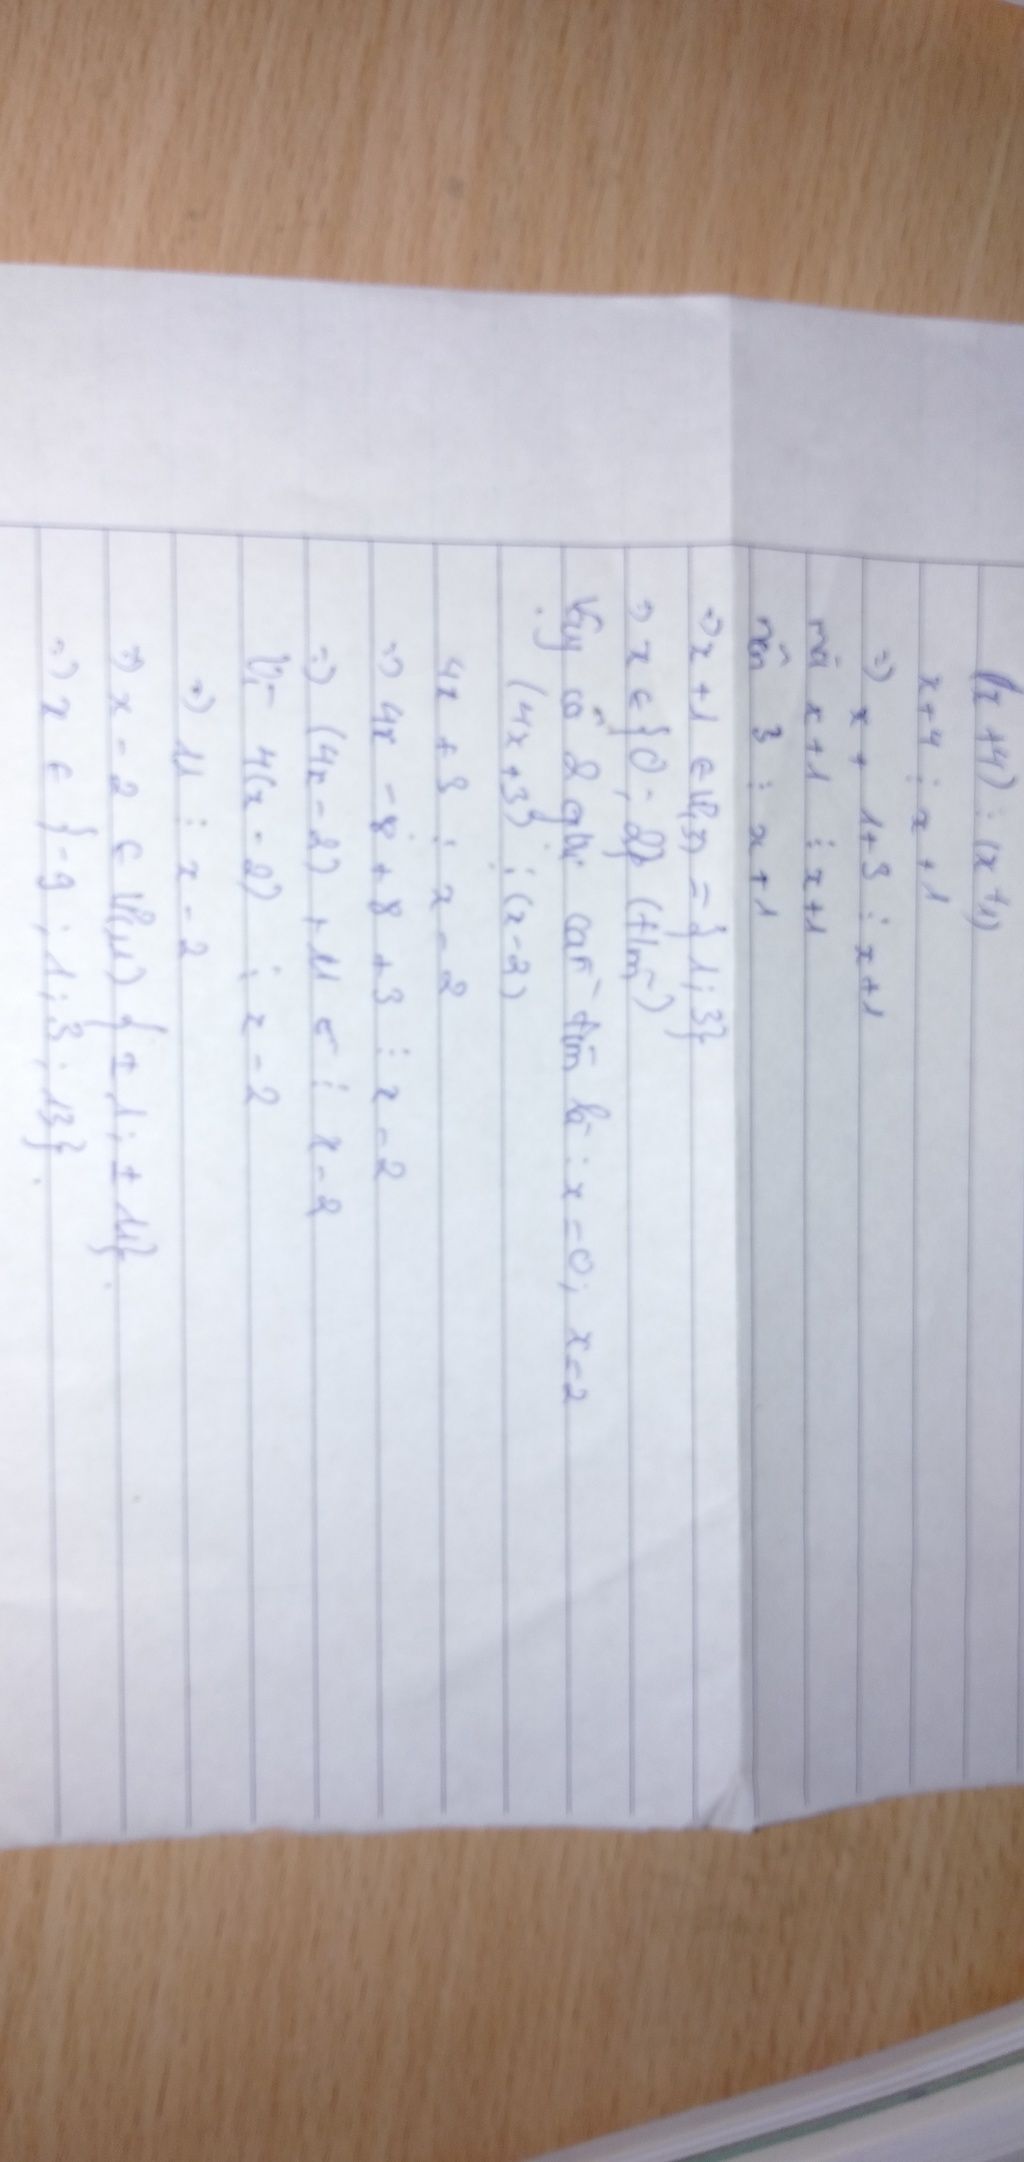 (x+4) ⋮ (x+1)
x+4 ⋮ x+1
=) x+ 1+3 ⋮ x+1
mà x+1 ⋮ x+1
nên 3 ⋮ x+1
=) x+1 ∈ Ư(3) = {1; 3}
=) x ∈ {0; 2} (tlm)
Vậy có 2 gtrị cần tìm là: x=0; x=2
(4x+3) ⋮ (x-2)
4x+3 ⋮ x-2
=) 4x -8+8 +3 ⋮ x-2
=) (4x-2) +11 ⋮ x-2
Vì 4(x-2) ⋮ x-2
=) 11 ⋮ x-2
=) x-2 ∈ Ư(11) { ±1; ±11}.
=) x ∈ {-9; 1; 3; 13}.